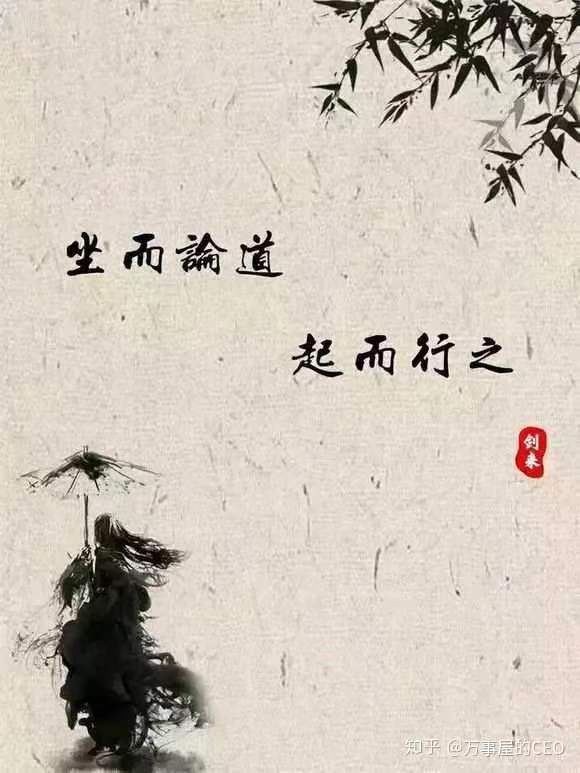 坐而論道
起而行之
剑来
知乎 @万事屋的CEO